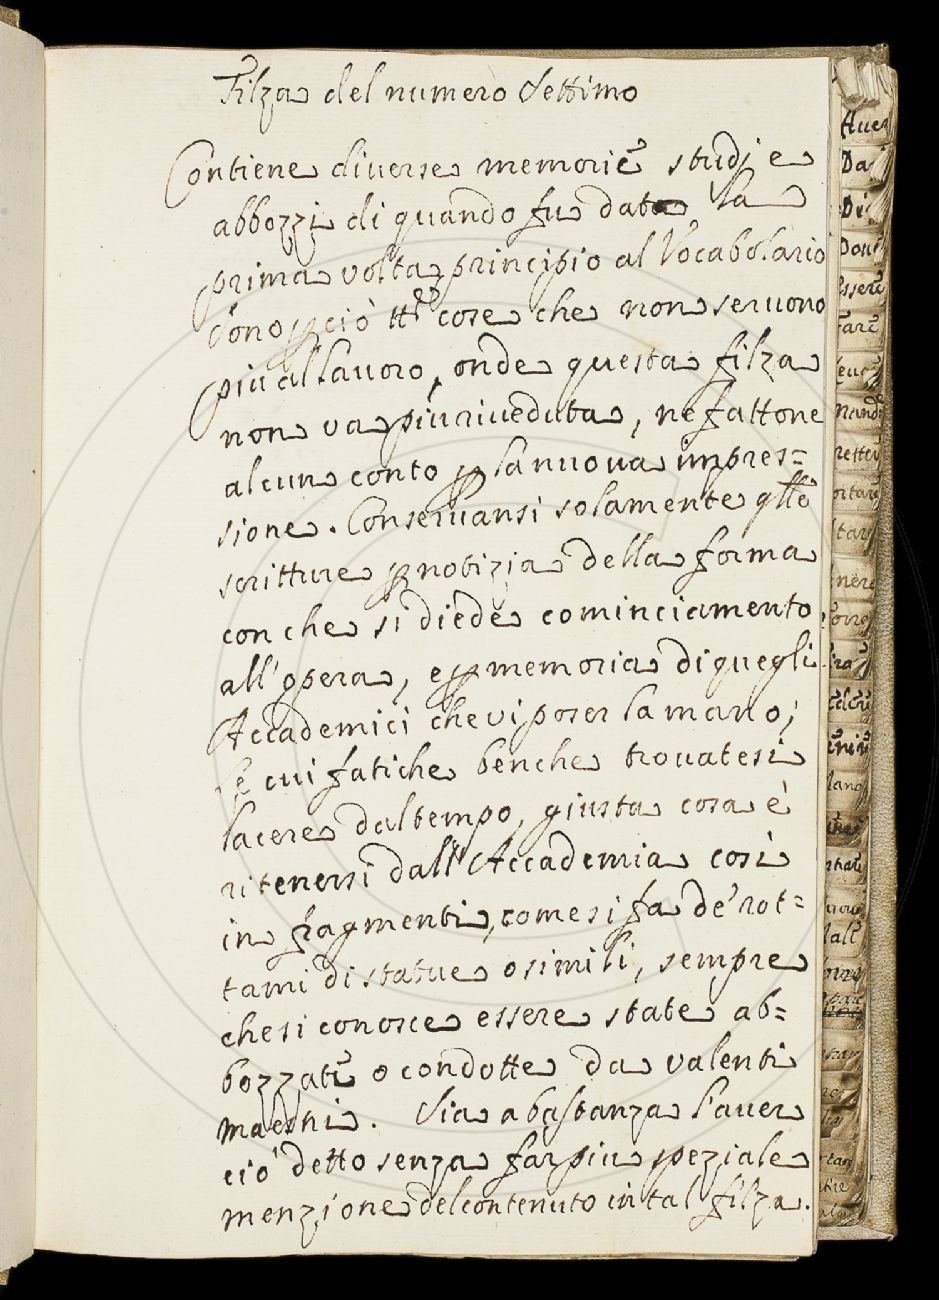 Filza del numero Settimo
Contiene diuerse memorie studj e
abbozzi di quando fu dato la
prima volta principio al Vocabolario
Sono ꝑ ciò tte cose che non seruono
piu al lauoro, onde questa filza
non va piu riueduta, ne fattone
alcun conto ꝑ la nuoua impres=
sione. Conseruansi solamente qlle
scritture ꝑ notizia della forma
con che si diede cominciamento
all'opera, e ꝑ memoria di quegli
Accademici che vi poser la mano;
le cui fatiche benche trouatesi
lacere dal tempo, giusta cosa è
ritenersi dall'Accademia così
in fragmenti, come si fa de' rot=
tami di statue o simili, sempre
che si conosce essere state ab=
bozzate o condotte da valenti
maestri. Sia a bastanza l'auer
ciò detto senza far piu speziale
menzione del contenuto in tal filza.
Auer
Da
Di
Doue
Essere
Fare